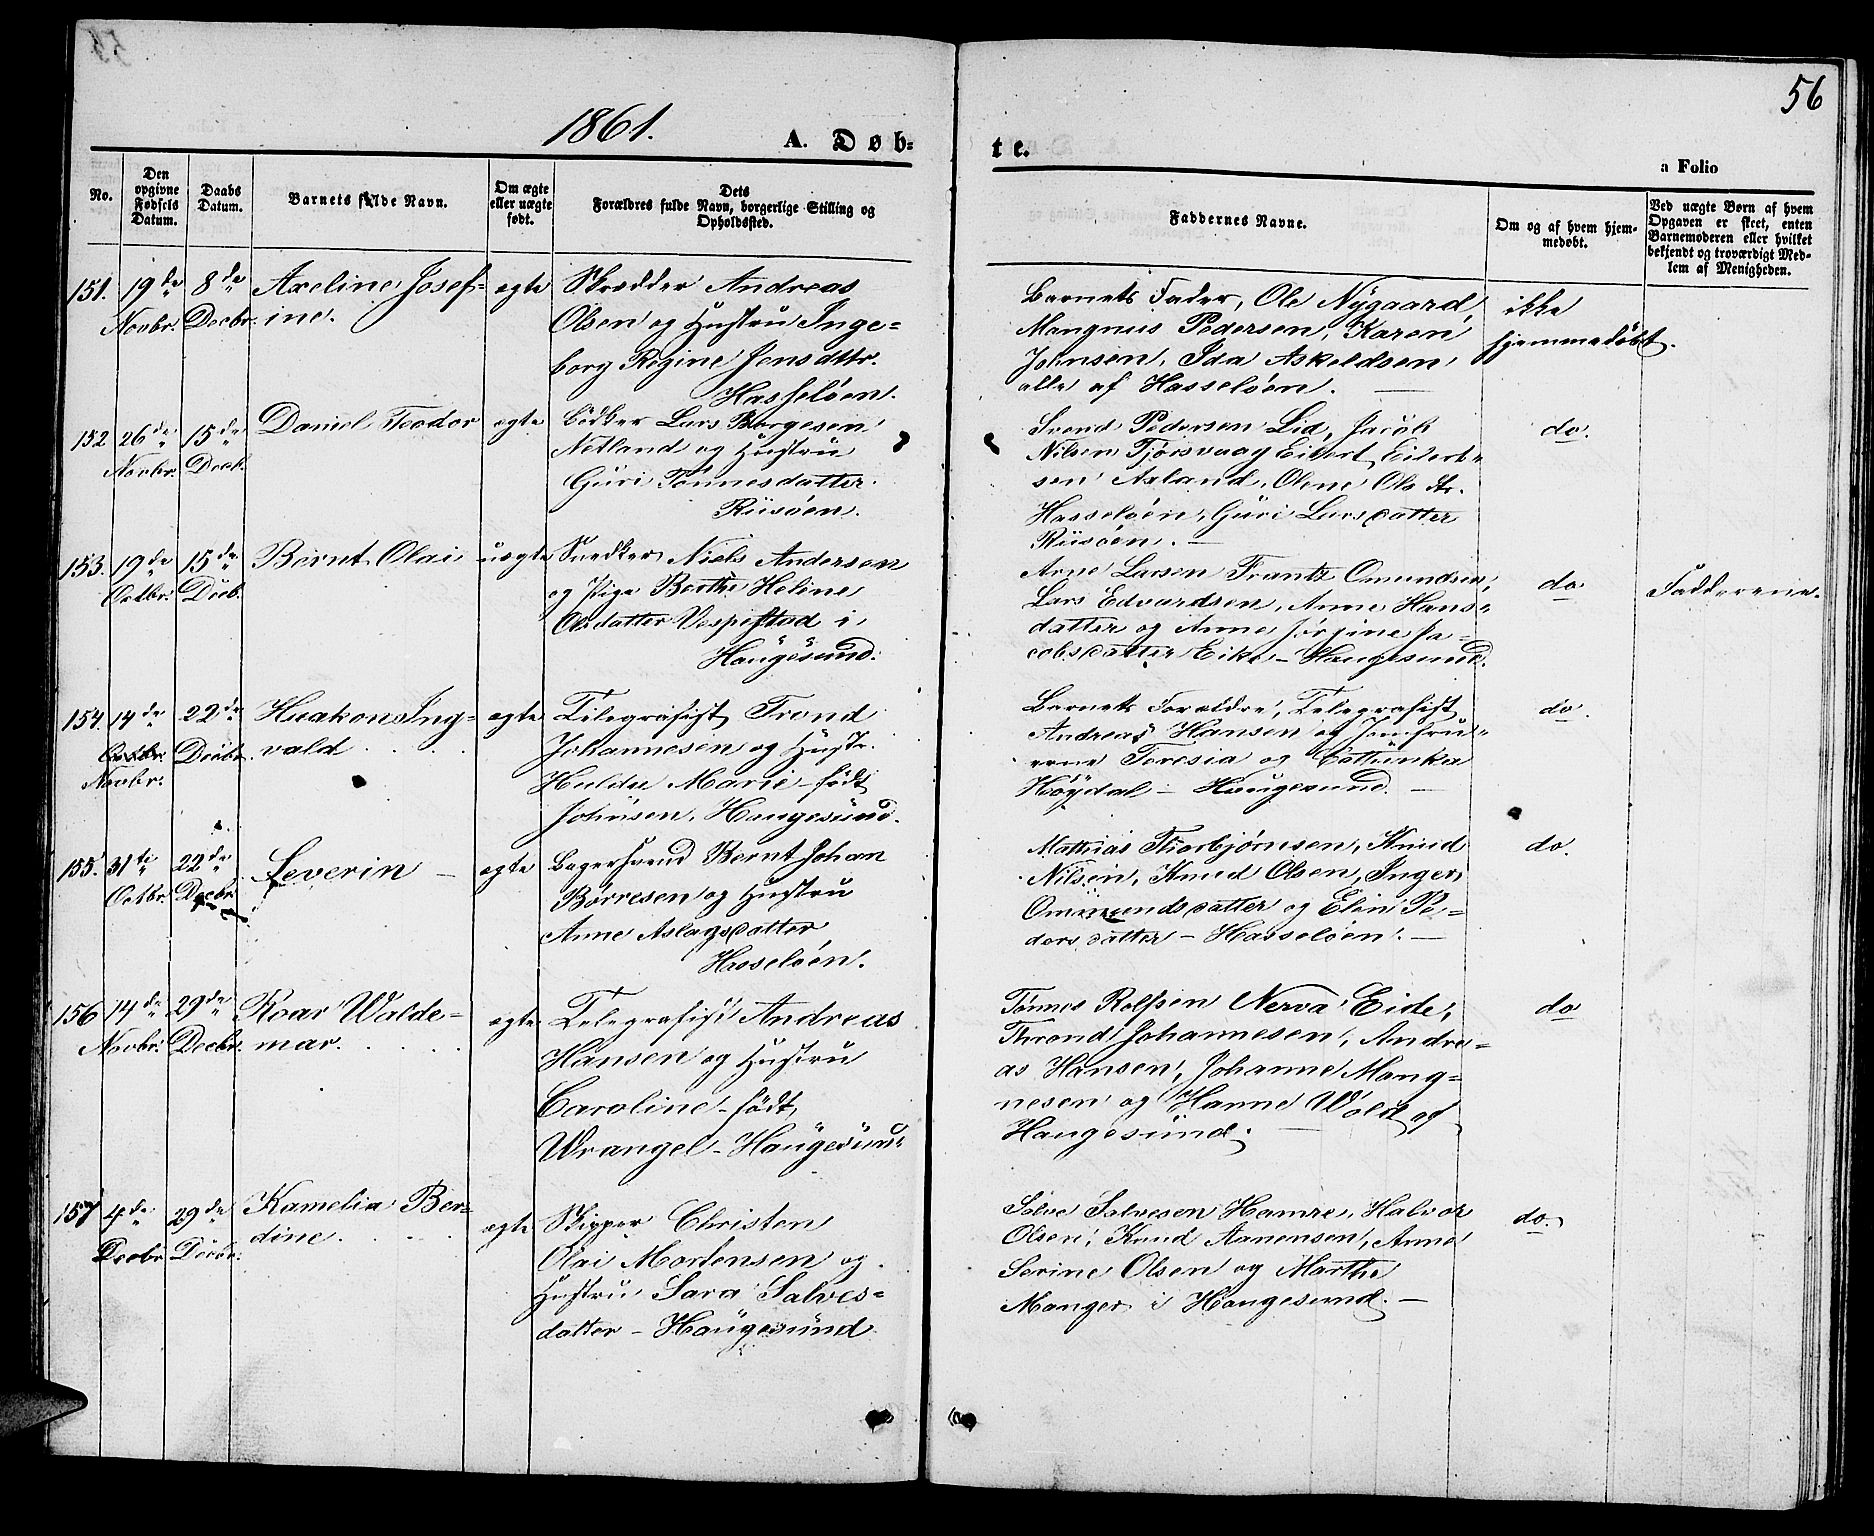 56
1861.
A. Døb-
te.
a Folio
No.
Den opgivne Fødsels Datum.
Daabs Datum.
Barnets fulde Navn.
Om ægte eller uægte født.
Dets Forældres fulde Navn, borgerlige Stilling og Opholdssted.
Faddernes Navne.
Om og af hvem hjem-
medøbt.
Ved uægte Børn af hvem
Opgaven er skeet, enten
Barnemoderen eller hvilket
bekjendt og troværdigt Med-
lem af Menigheden.
151. 19de Novbr. 8de Decbr.
Axeline Josef-
ine.
ægte
Skrædder Andreas
Olsen og Hustru Inge-
borg Regine Jensdttr.
Hasseløen.
Barnets Fader, Ole Nygaard,
Mangnus Pedersen, Karen
Johnsen, Ida Askeldsen,
alle af Hasseløen.
ikke
hjemmedøbt.
152 26de Novbr. 15de Decb.
Daniel Teodor
ægte
Bødker Lars Borgesen
Netland og Hustru
Guri Tønnesdatter.
Risøen.
Svend Pedersen Lid, Jacob
Nilsen Tjørsvaag Eilert Eilert-
sen Axland, Olene Ols dtr.
Hasseløen, Guri Larsdatter
Risøen.
do.
153. 19de Octbr. 15de Decb.
Bernt Olai
uægte
Snedker Niels Andersen
og Pige Berthe Heline
Olsdatter Vespestad i
Haugesund.
Arne Larsen Frantz Omundsen,
Lars Edvardsen, Anne Hans-
datter og Anne Jørgine Ja-
cobsdatter Eike - Haugesund.
do
Fadderene.
154 14de Octbr. Novbr. 22de Decbr.
Haakon Ing-
vald
ægte
Telegrafist Trond
Johannesen og Hustr.
Hulda Marie født
Johnsen, Haugesund.
Barnets Forældre, Telegrafist
Andreas Hansen og Jomfru-
erne Teresia og Cathinka
Høydal - Haugesund.
do.
155. 31te Octbr. 22de Decbr.
Severin
ægte
Bagersvend Bernt Johan
Børresen og Hustru
Anne Aslagsdatter
Hasseløen.
Mathias Thorbjørnsen, Knud
Nilsen, Knud Olsen, Inger
Ommundsdatter og Elen Pe-
dersdatter - Hasseløen.
do.
156 14de Novbr. 29de Decbr.
Roar Walde-
mar.
ægte
Telegrafist Andreas
Hansen og Hustru
Caroline født
Wrangel - Haugesund
Tønnes Rolfsen Nerva Eide,
Thrond Johannesen, Andre-
as Hansen, Johanne Mang-
nesen og Hanne Wold af
Haugesund.
do
157 4de Decbr 29de Decbr.
Kamelia Ber-
dine.
ægte
Skipper Christen
Olai Mortensen og
Hustru Sara Salves-
datter - Haugesund
Salve Salvesen Hamre, Halvor
Olsen, Knud Aanensen, Anne
Serine Olsen og Marthe
Manger i Haugesund.
do.